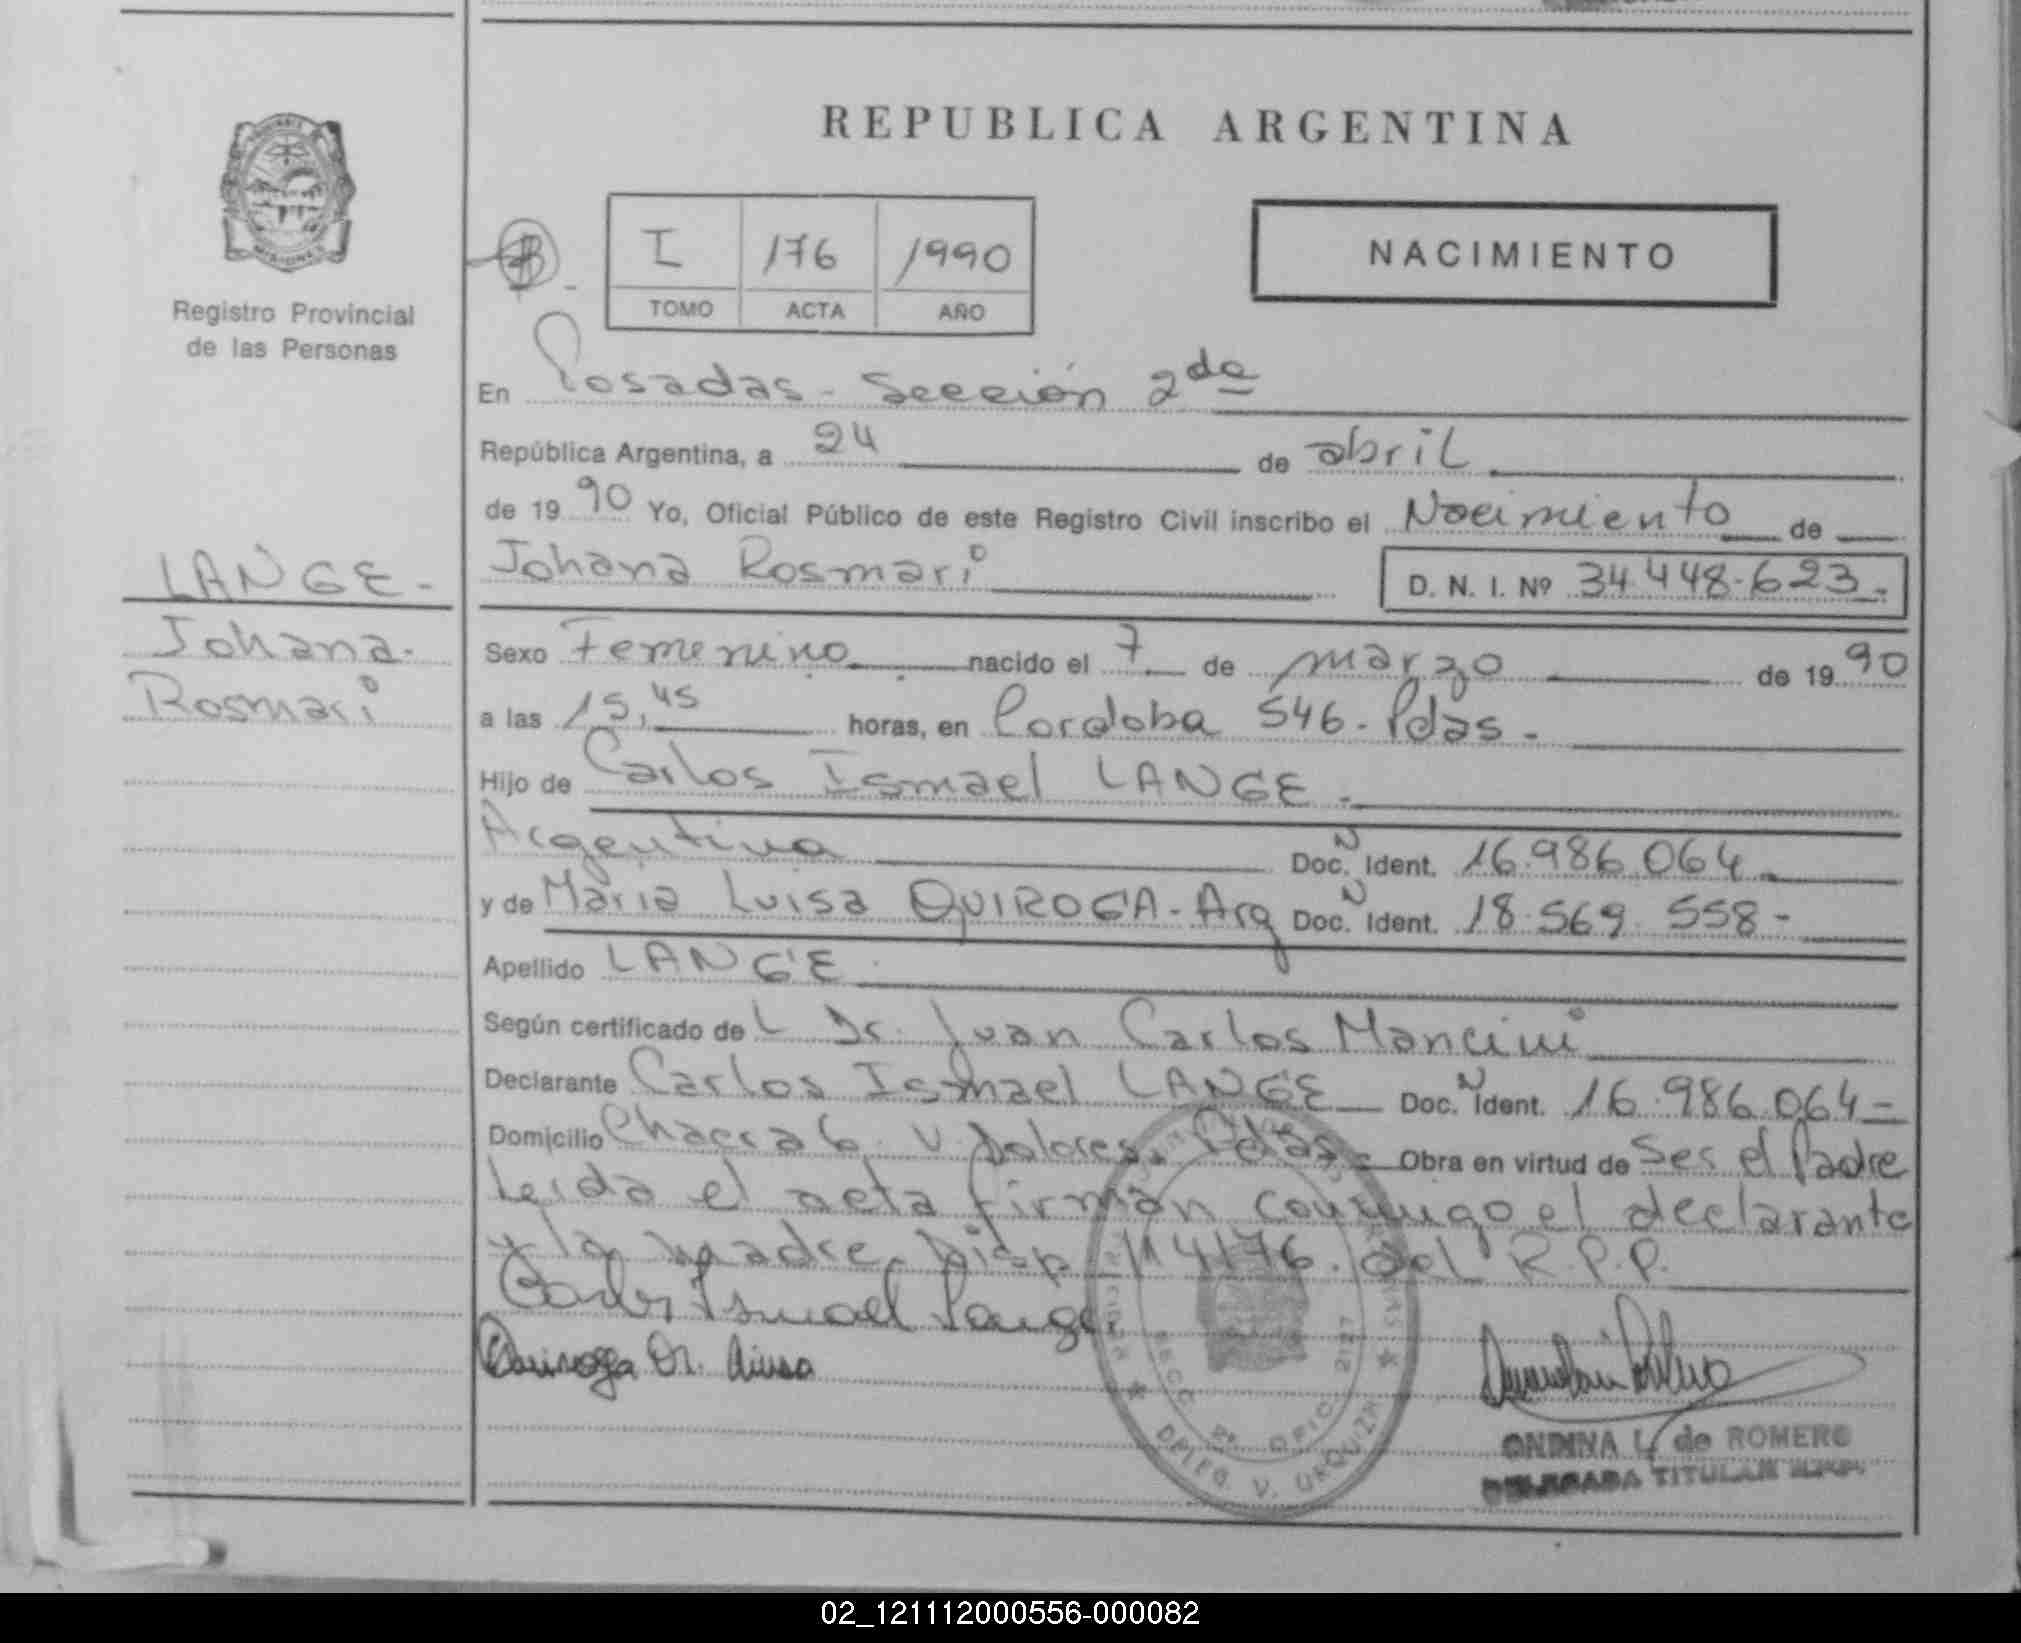 REPUBLICA ARGENTINA
Registro Provincial
de las Personas
I 176 1990
TOMO ACTA AÑO
NACIMIENTO
En Posadas - Sección 2da
República Argentina, a 24 de abril
de 1990 Yo, Oficial Público de este Registro Civil inscribo el Nacimiento de
LANGE -
Johana Rosmari D. N. I. Nº 34.448.623.-
Johana.
Rosmari
Sexo Femenino nacido el 7 de marzo de 1990
a las 15,45 horas, en Cordoba 546 - Pdas. -
Hijo de Carlos Ismael LANGE -
Argentina Doc. N Ident. 16.986.064
y de Maria Luisa QUIROGA - Arg Doc. N Ident. 18.569.558 -
Apellido LANGE
Según certificado de L Dr. Juan Carlos Mancini
Declarante Carlos Ismael LANGE Doc. N Ident. 16.986.064 -
Domicilio Chacra 6. V. Dolores. Pdas - Obra en virtud de Ser el Padre
Leida el acta firman conmigo el declarante
y la madre. Disp 114/76. del R.P.P.
Carlos Ismael Lange
Quiroga
SECC 2ª OFIC. 2127
DPTO. V. URQUIZA
ONDINA L. de ROMERO
DELEGADA TITULAR
02_121112000556-000082